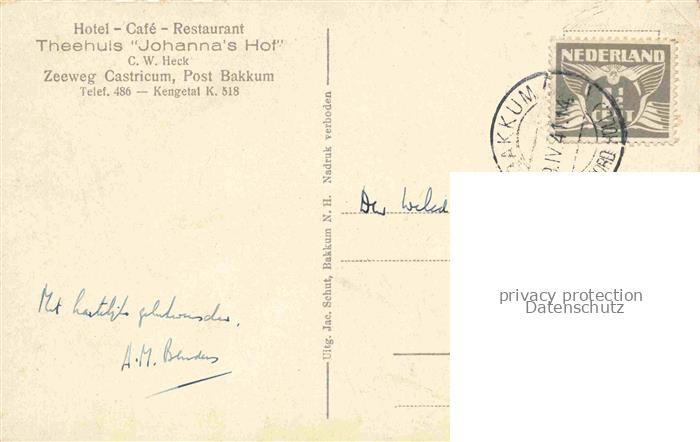 Hotel - Café - Restaurant
Theehuis "Johanna's Hof"
C. W. Heck
Zeeweg Castricum, Post Bakkum
Telef. 486 — Kengetal K. 518
Uitg. Jac. Schut, Bakkum N. H. Nadruk verboden
NEDERLAND
1½
CENT
BAKKUM
IV 41
NOORD HOLL
Met hartelijke gelukwenschen,
A.M.
privacy protection
Datenschutz